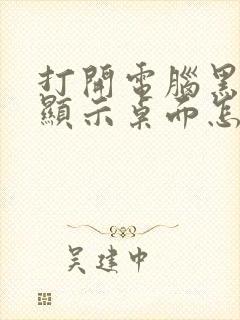 打開電腦黑
顯示桌面怎
吴建中